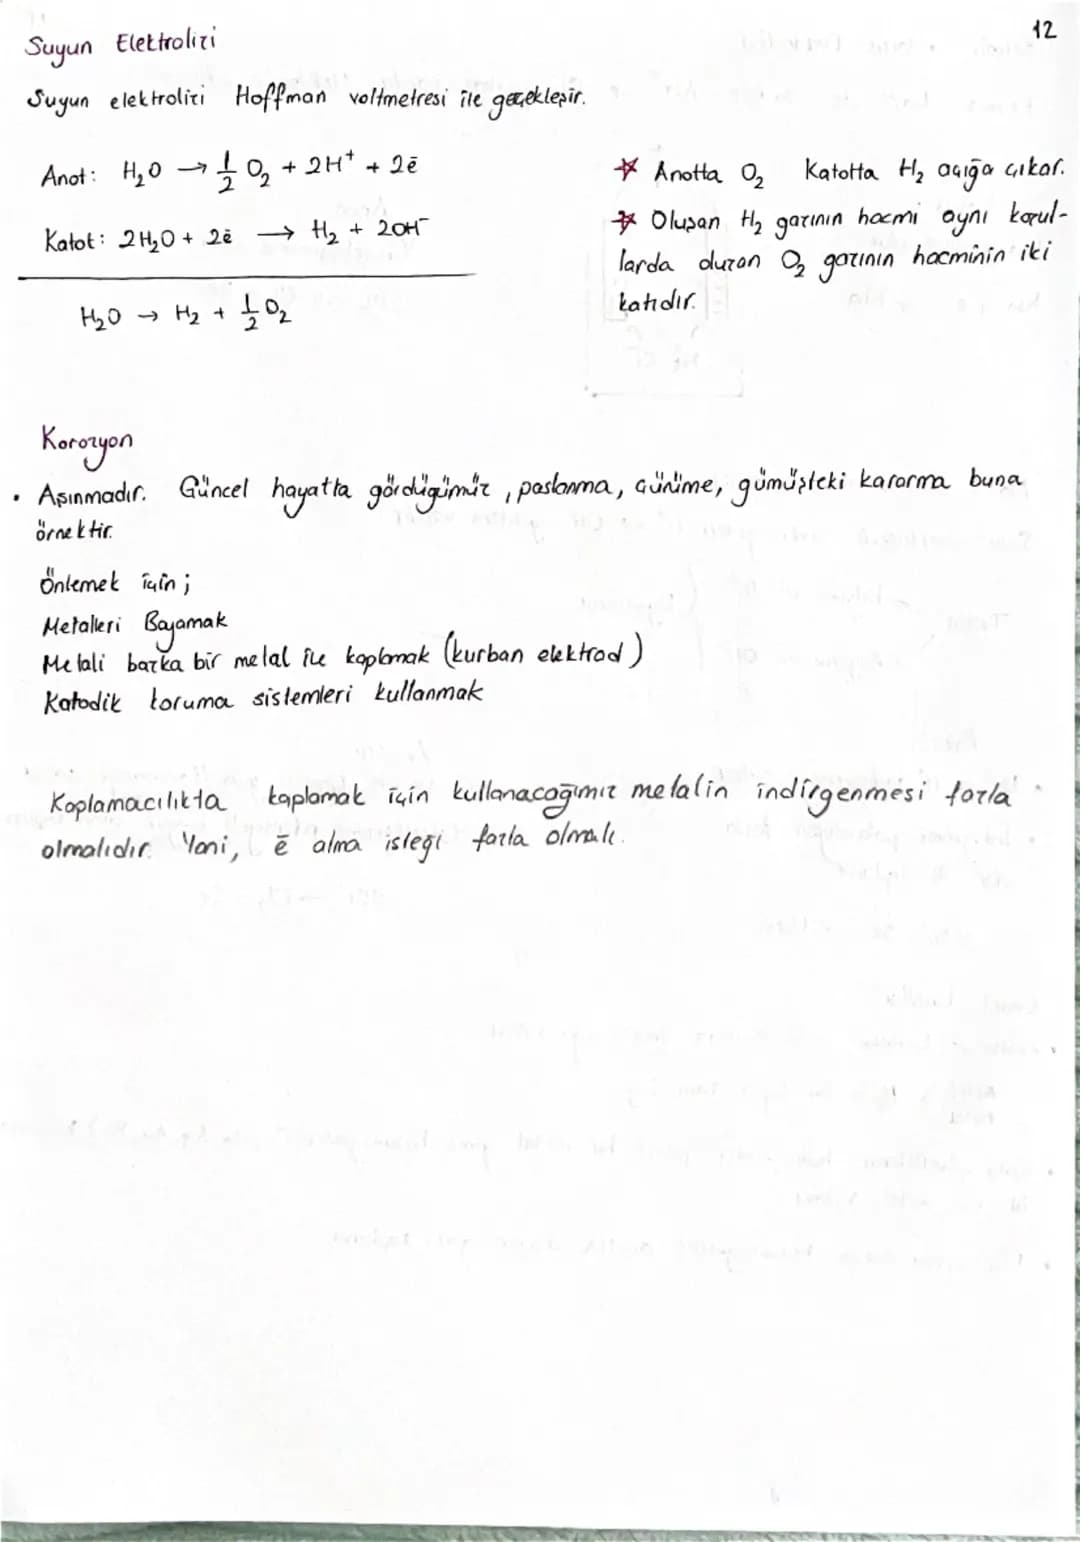 12
Suyun Elektrolizi
Suyun elektrolizi Hoffman voltmetresi ile geçekleşir.
Anot: H₂O → 1/2 O₂ + 2H⁺ + 2ē
Katot: 2H₂O + 2ē → H₂ + 2OH⁻
H₂O → H₂ + 1/2 O₂
☆ Anotta O₂ Katotta H₂ açığa çıkar.
☆ Oluşan H₂ gazının hacmi aynı koşul-
larda oluşan O₂ gazının hacminin iki
katıdır.
Korozyon
• Aşınmadır. Güncel hayatta gördüğümüz, paslanma, çürüme, gümüşteki kararma buna
örnektir.
Önlemek için;
Metalleri Boyamak
Metali başka bir metal ile kaplamak (kurban elektrod)
Katodik koruma sistemleri kullanmak
Kaplamacılıkta kaplamak için kullanacağımız metalin indirgenmesi fazla
olmalıdır. Yani, ē alma isteği fazla olmalı.